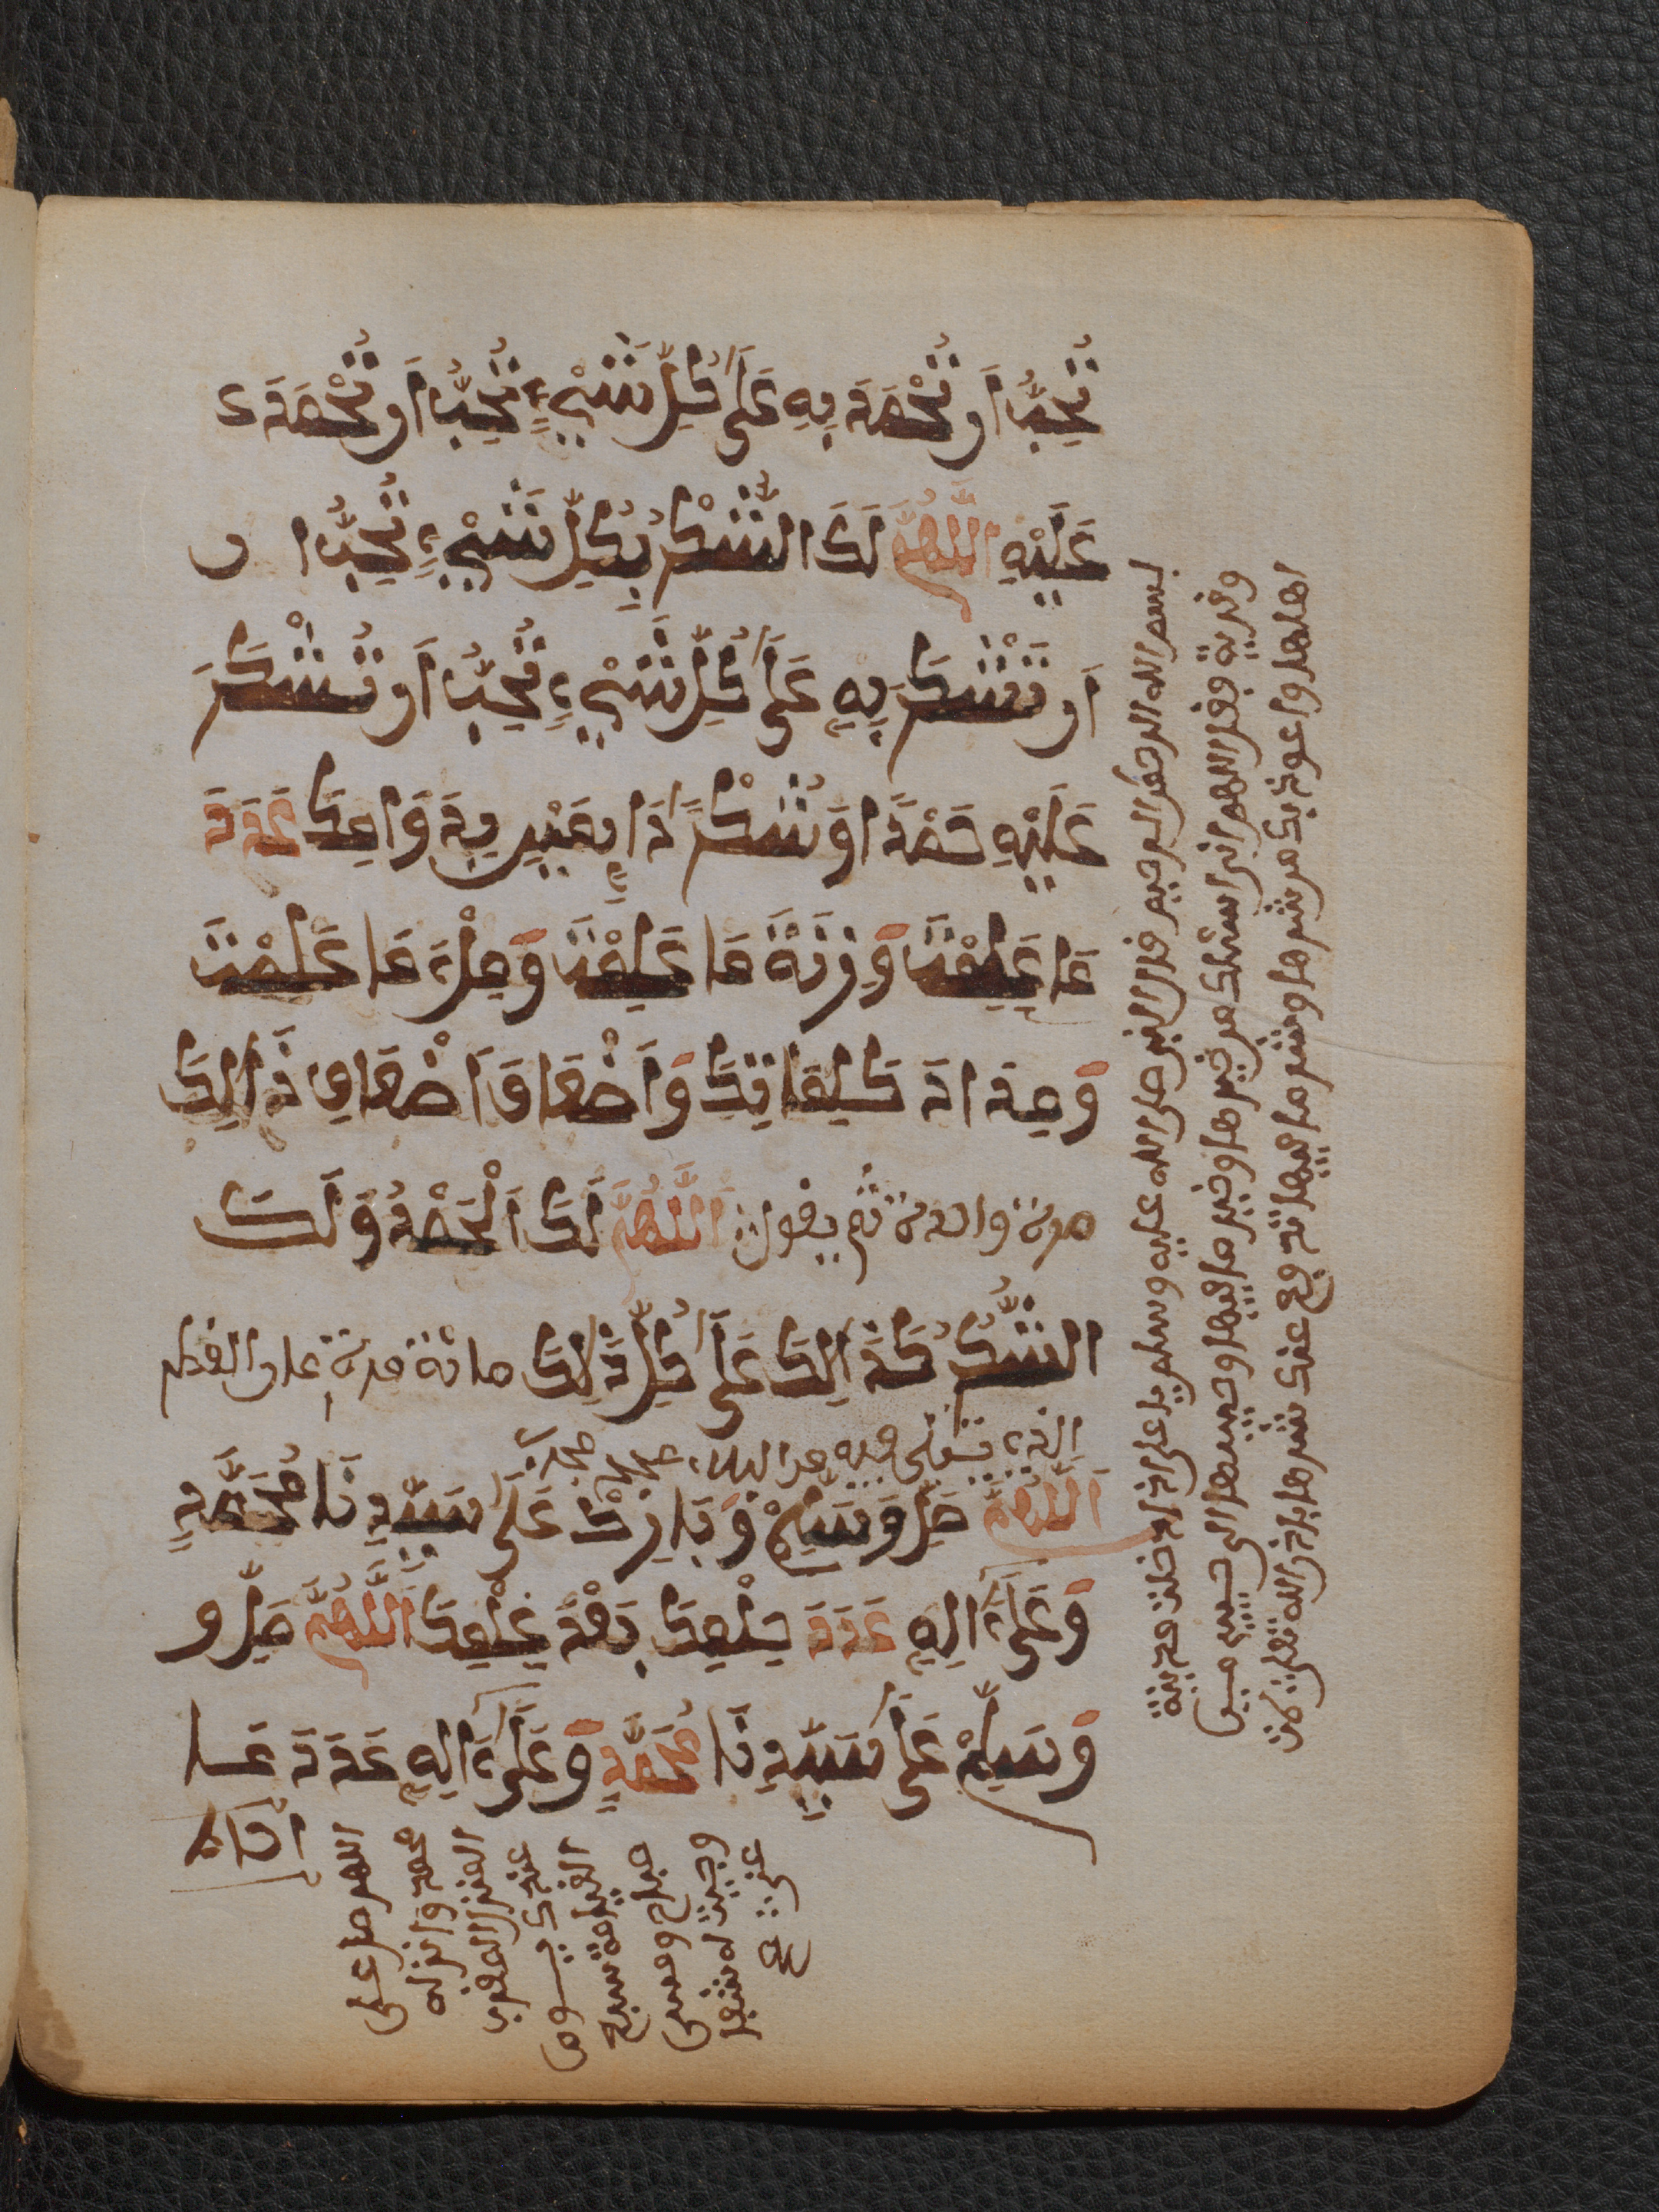 تُحِبُّ اَن تُحْمَدَ بِهِ عَلَى كُلِّ شَيْءٍ تُحِبُّ اَن تُحْمَدَ
عَلَيْهِ اَللَّهُمَّ لَكَ الشُّكْرُ بِكُلِّ شَيْءٍ تُحِبُّ ا ن
اَن تُشْكَرَ بِهِ عَلَى كُلِّ شَيْءٍ تُحِبُّ اَن تُشْكَرَ
عَلَيْهِ حَمْدًا وَشُكْرًا دَايِمَيْنِ بِدَوَامِكَ عَدَدَ
مَا عَلِمْتَ وَزِنَةَ مَا عَلِمْتَ وَمِلْءَ مَا عَلِمْتَ
وَمِدَادَ كَلِمَاتِكَ وَاَضْعَافَ اَضْعَافِ ذَالِكَ
مرة واحدة ثم يقول: اَللَّهُمَّ لَكَ اَلْحَمْدُ وَلَكَ
الشُّكْرُ كَذَالِكَ عَلَى كُلِّ ذَالِكَ مائة مرة على القطم
اَللَّهُمَّ صَلِّ وَسَلِّمْ وَبَارِكْ عَلَى سَيِّدِنَا مُحَمَّدٍ
وَعَلَى ءَالِهِ عَدَدَ حِلْمِكَ بَعْدَ عِلْمِكَ اَللَّهُمَّ صَلِّ و
وَسَلِّمْ عَلَى سَيِّدِنَا مُحَمَّدٍ وَعَلَى ءَالِهِ عَدَدَ مَا
بسم الله الرحمن الرحيم قال النبي صلى الله عليه وسلم يا على اذا دخلت مدينة
وقرية فقل اللهم اني اسئلك من خير ها وخير ما فيها وحببنها الى
اهلها واعوذ بك من شرها وشر ما فيها
اللهم صل على
محمد وانزله
المنزل المقرب
عندك يـوم
القيامة
صباح ومسى
وجبت له شفا
عتى